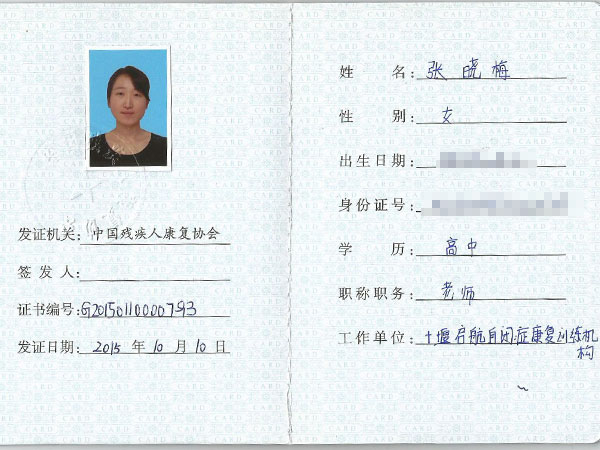 发证机关：中国残疾人康复协会
签发人：
证书编号：G20150110000793
发证日期：2015 年 10 月 10 日
姓名：张晓梅
性别：女
出生日期：
身份证号：
学历：高中
职称职务：老师
工作单位：十堰启航自闭症康复训练机
构